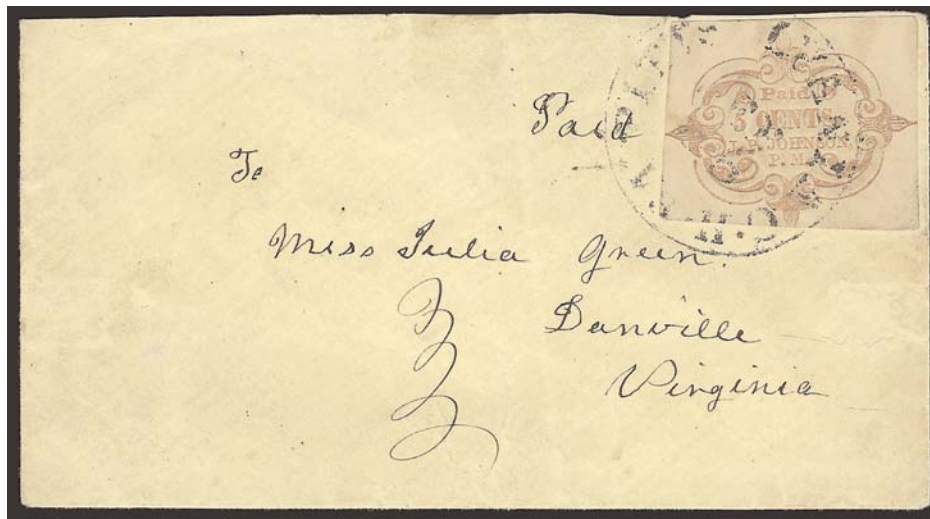 Paid
5 CENTS
J. P. JOHNSON,
P. M.
Paid
To
Miss Julia Green.
Danville
Virginia